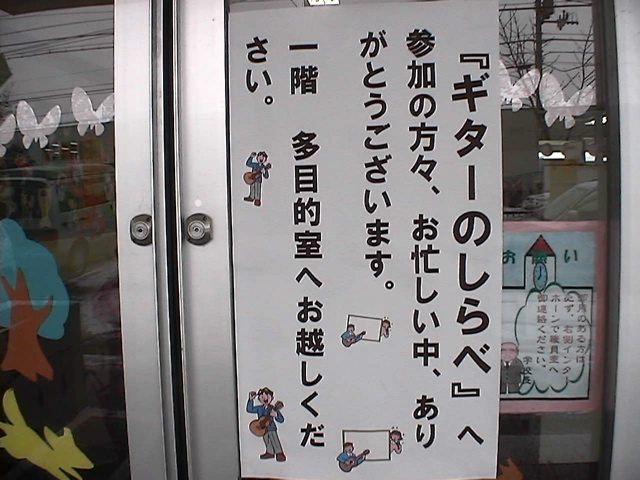 『ギターのしらべ』へ
参加の方々、お忙しい中、あり
がとうございます。
一階　多目的室へお越しくだ
さい。
お願い
御用のある方は、
必ず、右側インタ
ーホーンで職員室へ
御連絡ください。
学校長